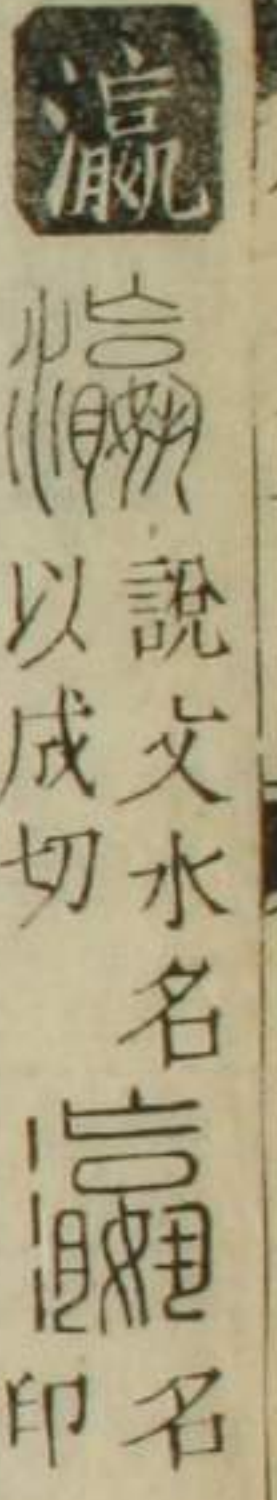 瀛
瀛
說文水名
以成切
瀛
名
印